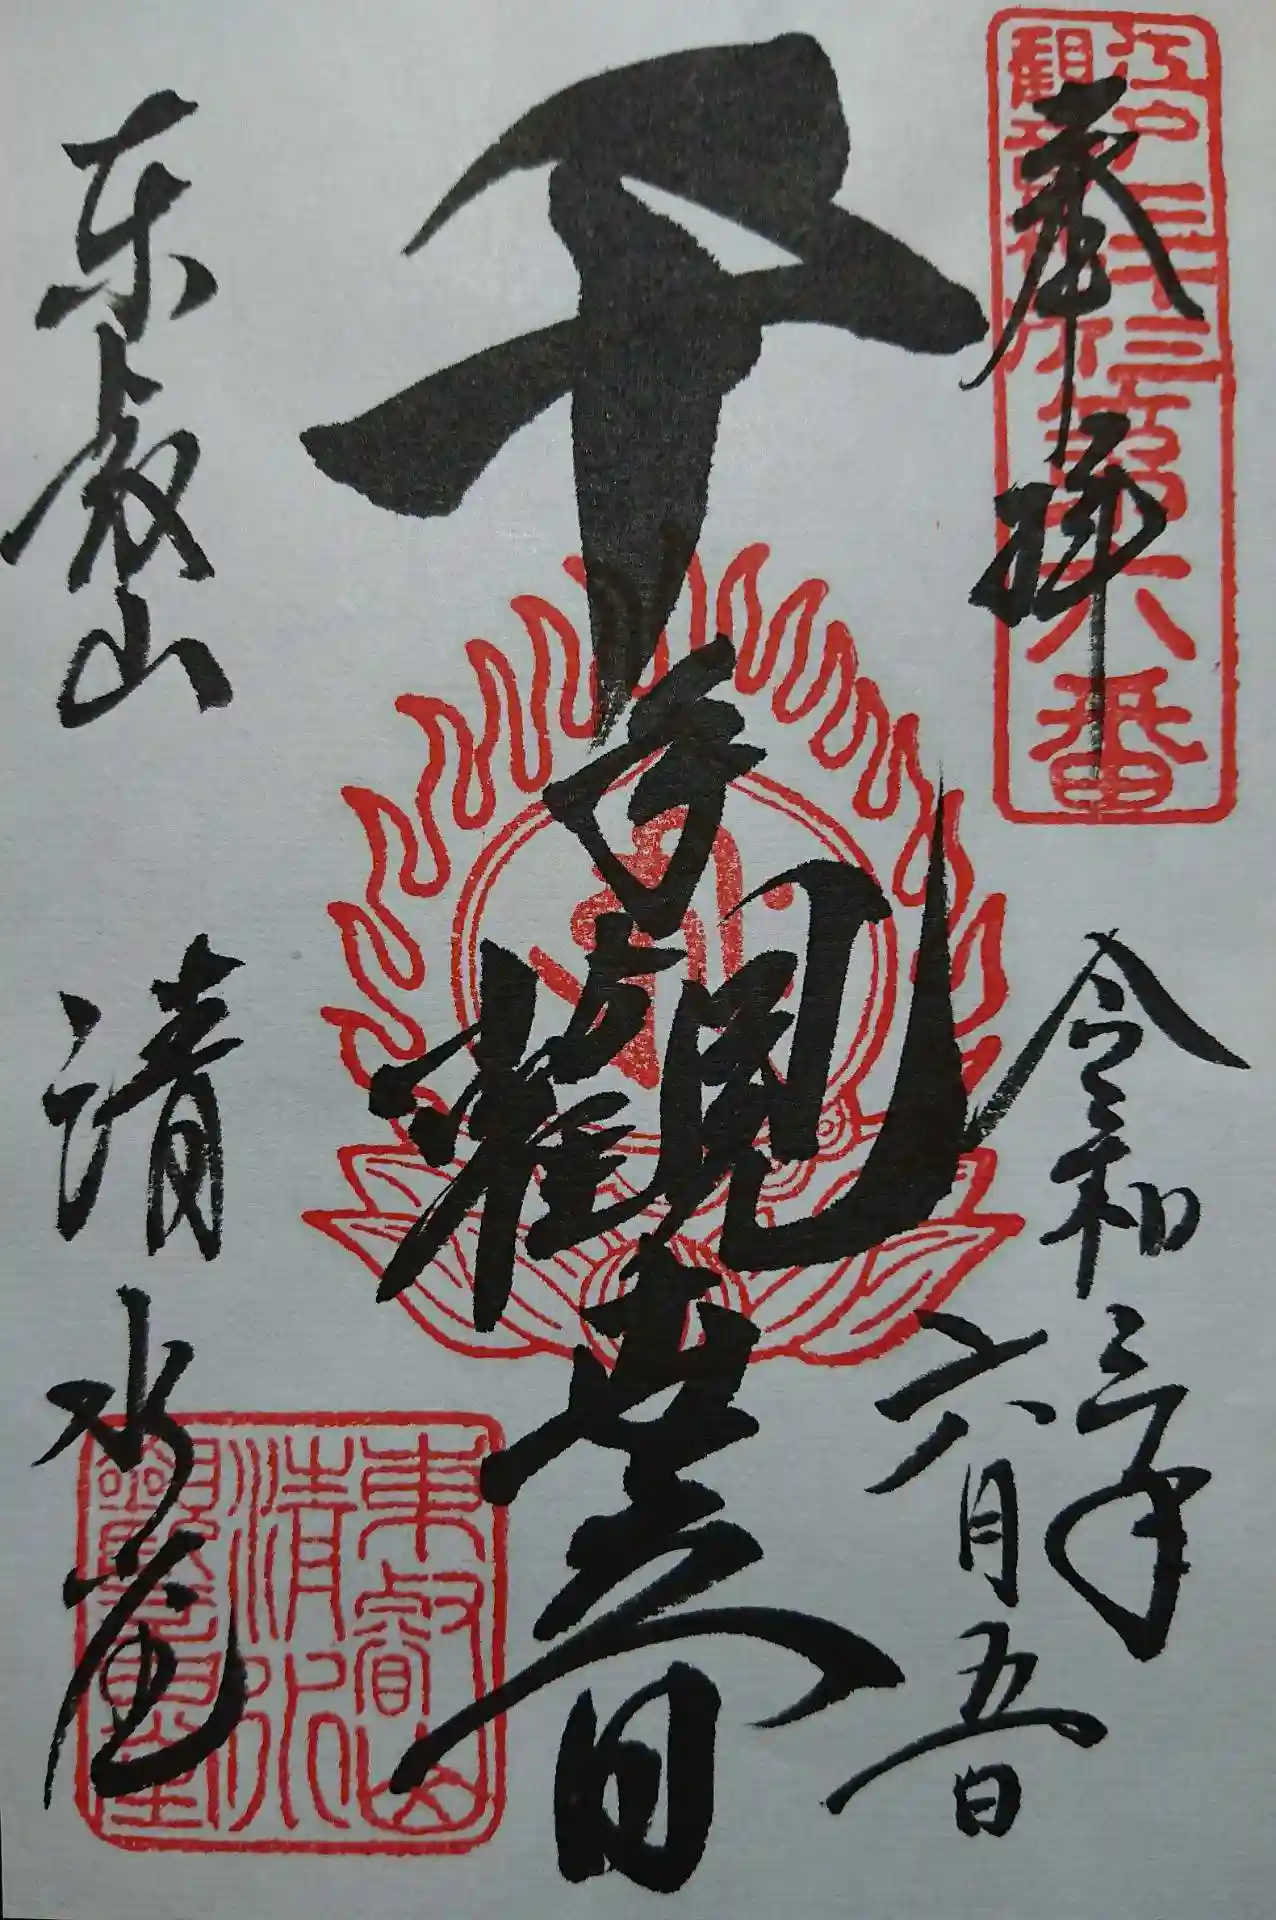 奉拝
江戸三十三所第六番
観音札所
令和三年
六月五日
千手観世音
東叡山
清水堂
東叡山
清水
観音堂